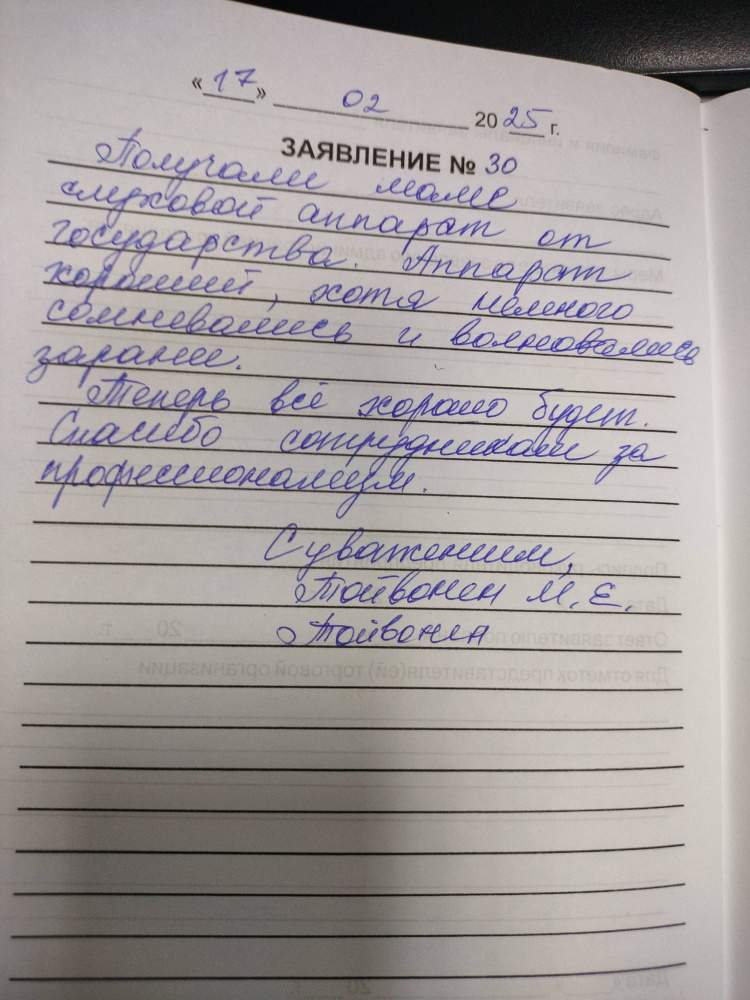 «17» 02 2025 г.
ЗАЯВЛЕНИЕ № 30
Получали маме
слуховой аппарат от
государства. Аппарат
хороший, хотя немного
сомневались и волновались
заранее.
Теперь всё хорошо будет.
Спасибо сотрудникам за
профессионализм.
С уважением,
Тойвонен М. Е.
Тойвонен